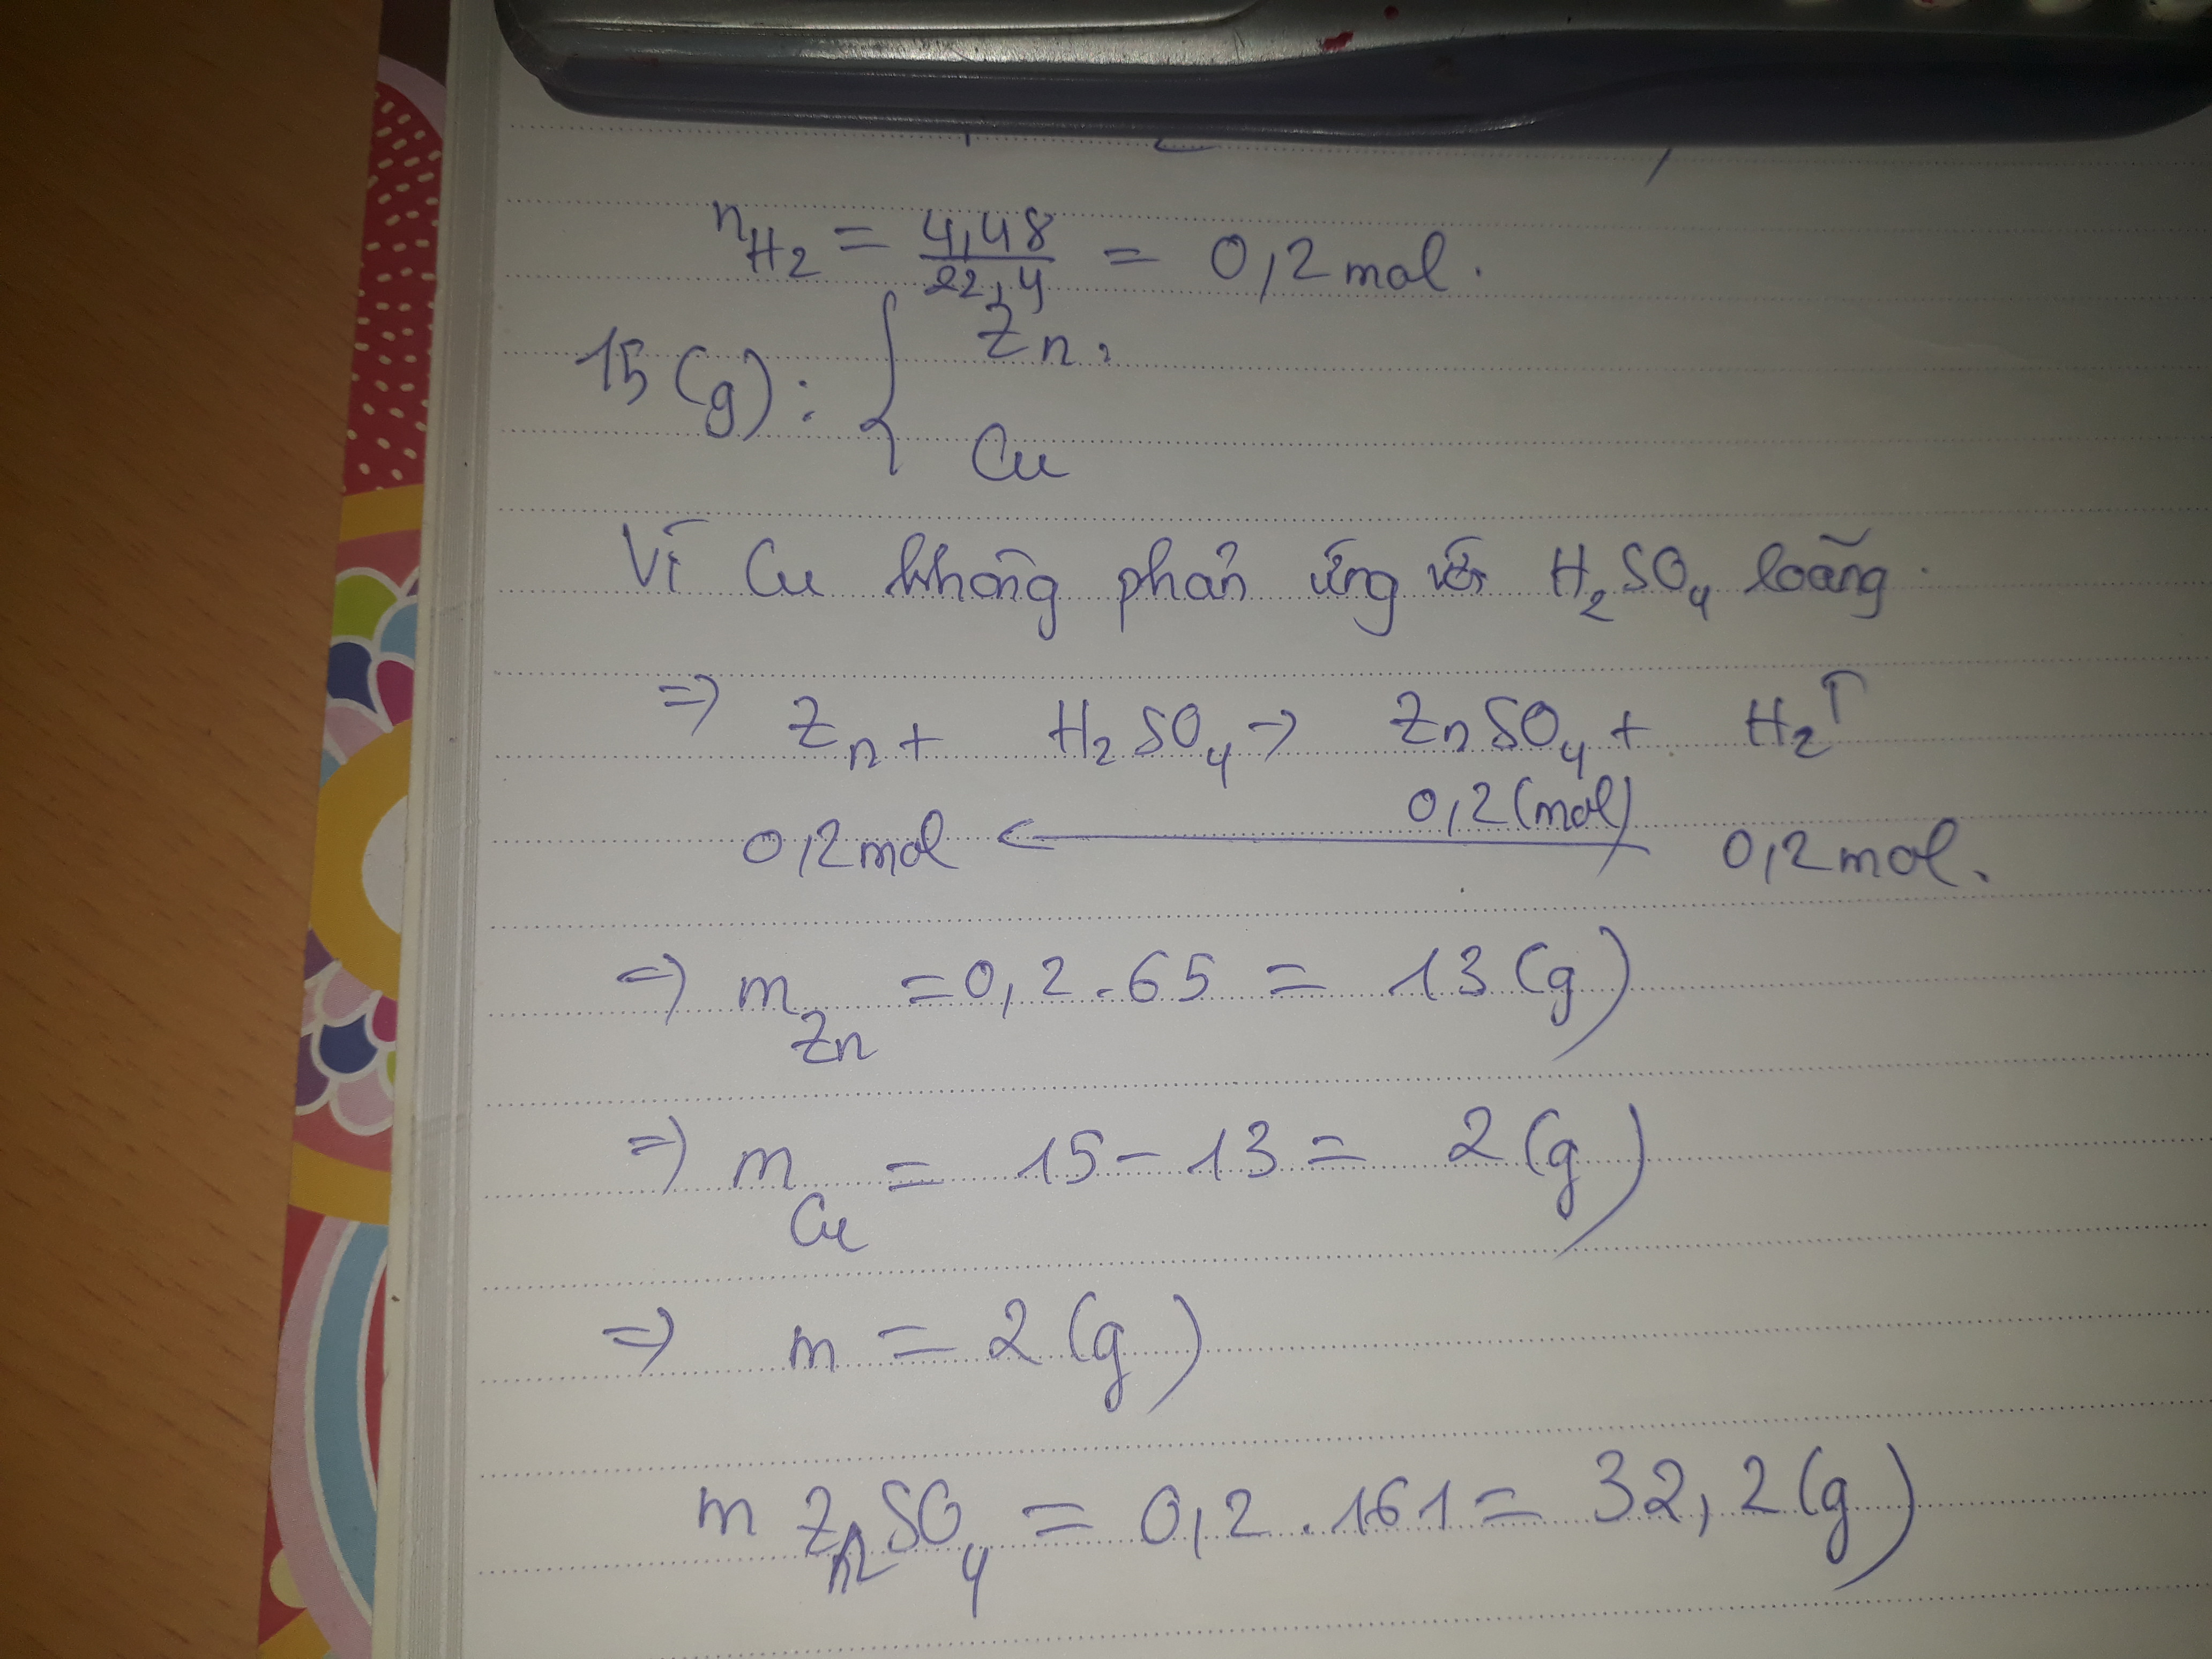 nH2 = 4,48/22,4 = 0,2 mol.
15(g): { Zn,
Cu
Vì Cu không phản ứng với H2SO4 loãng.
=> Zn + H2SO4 -> ZnSO4 + H2↑
0,2 mol <— 0,2(mol) 0,2 mol.
=> mZn = 0,2.65 = 13(g)
=> mCu = 15 - 13 = 2(g)
=> m = 2(g)
m ZnSO4 = 0,2.161 = 32,2(g)